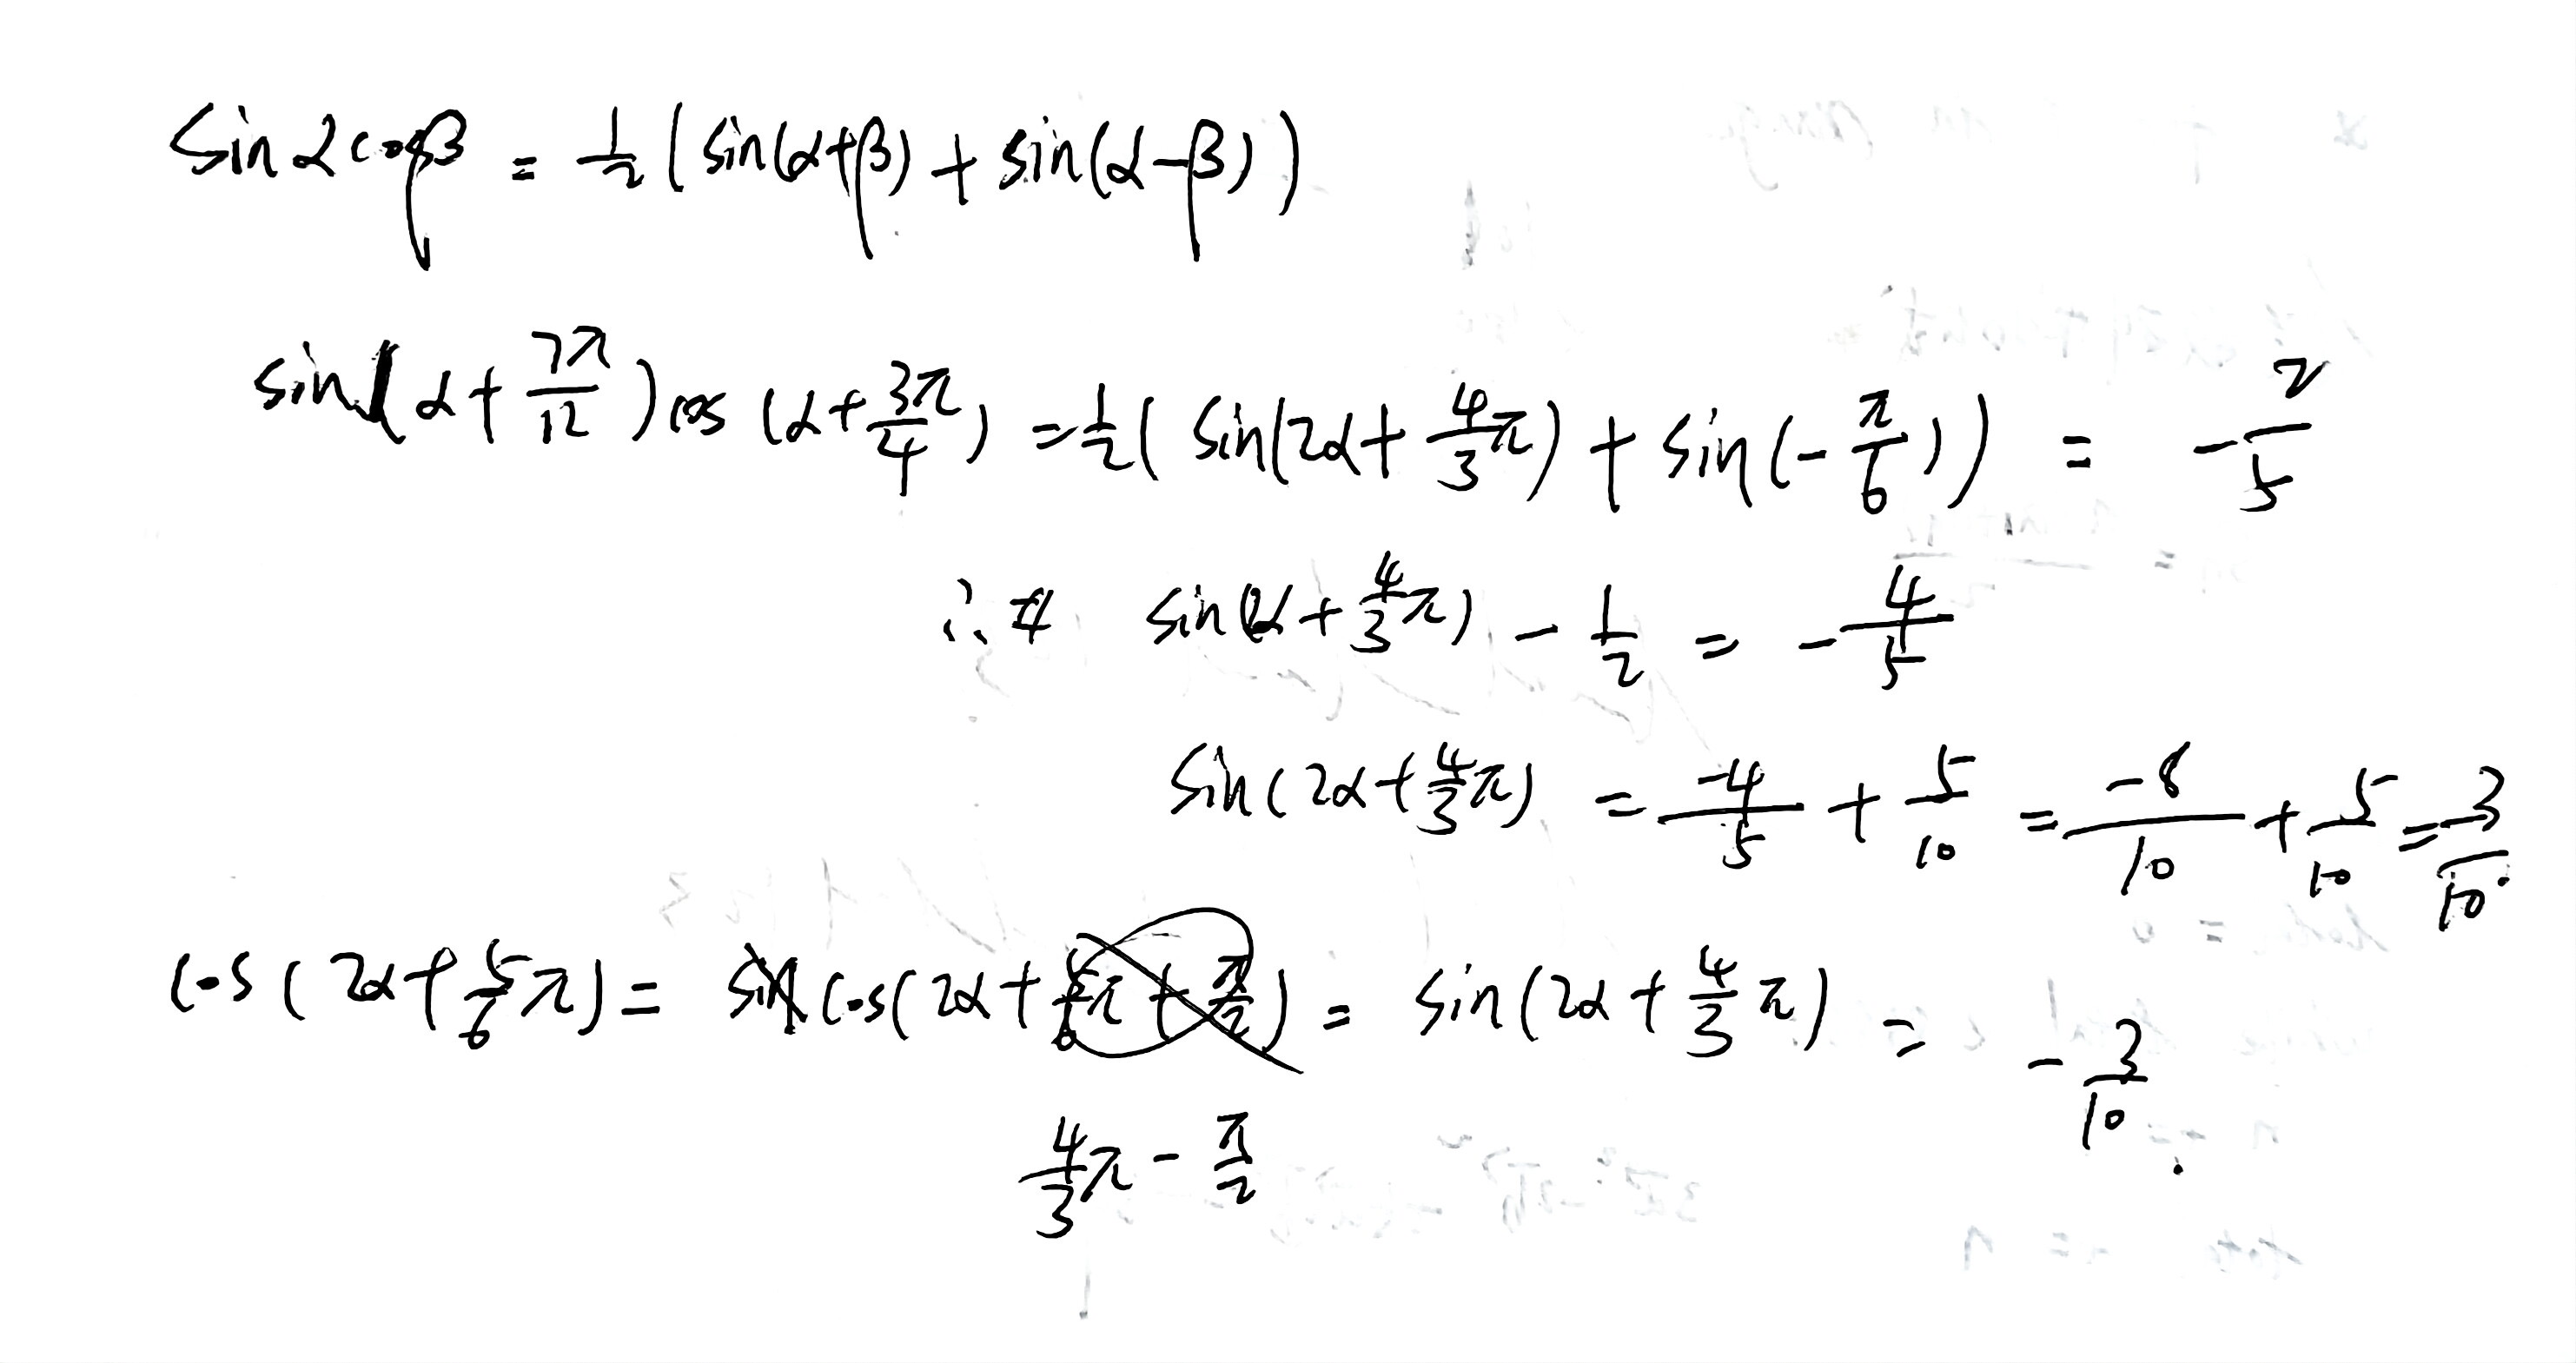 sin α cos β = 1/2 ( sin(α+β) + sin(α-β) )
sin( α + 7π/12 ) cos (α + 3π/4) = 1/2 ( sin(2α + 4/3 π) + sin(-π/6) ) = -2/5
∴ sin(2α + 4/3 π) - 1/2 = -4/5
sin(2α + 4/3 π) = -4/5 + 5/10 = -8/10 + 5/10 = 3/10.
cos(2α + 5/6 π) = cos(2α + ) = sin(2α + 4/3 π) = -3/10.
4/3 π - π/2